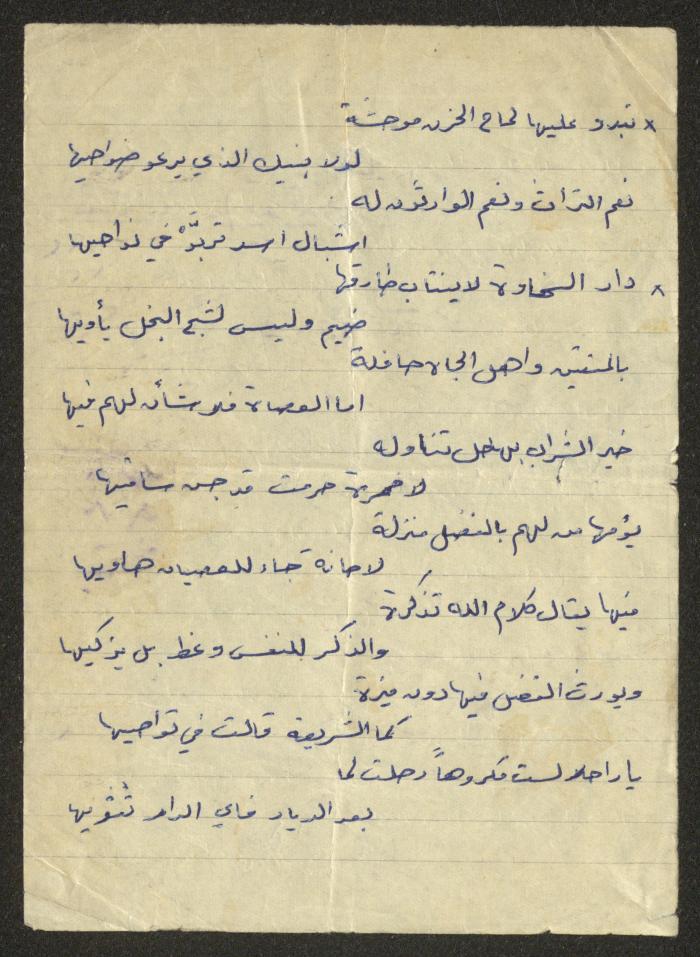 × تبدو عليها لحاح الحزن موحشة
لولا بنيك الذي يرعو ضواحيها
نعم التراث ونعم الوارثون له
اشبال اسد تربَّوْ في نواحيها
× دار السخاوة لا ينتاب طارقها
ضيم وليس لشبح البخل يأويها
بالمتقين واهل الجاه حافلة
اما العصاة فلا شأن لهم فيها
خير الشراب بل لحل تناوله
لا خمرة حرمت قد جس ساقيها
يؤمها من لهم بالفضل منزلة
لا حانة جاء للعصيان هاويها
فيها يقال كلام الله تذكرة
والذكر للنفس وعظ بل يزكيها
ويورث الفضل فيها دون ميزة
كما الشريعة قالت في تواصيها
يا راحلا لست مكروهاً رحلت لما
بعد الديار فاي الدار تُثويها